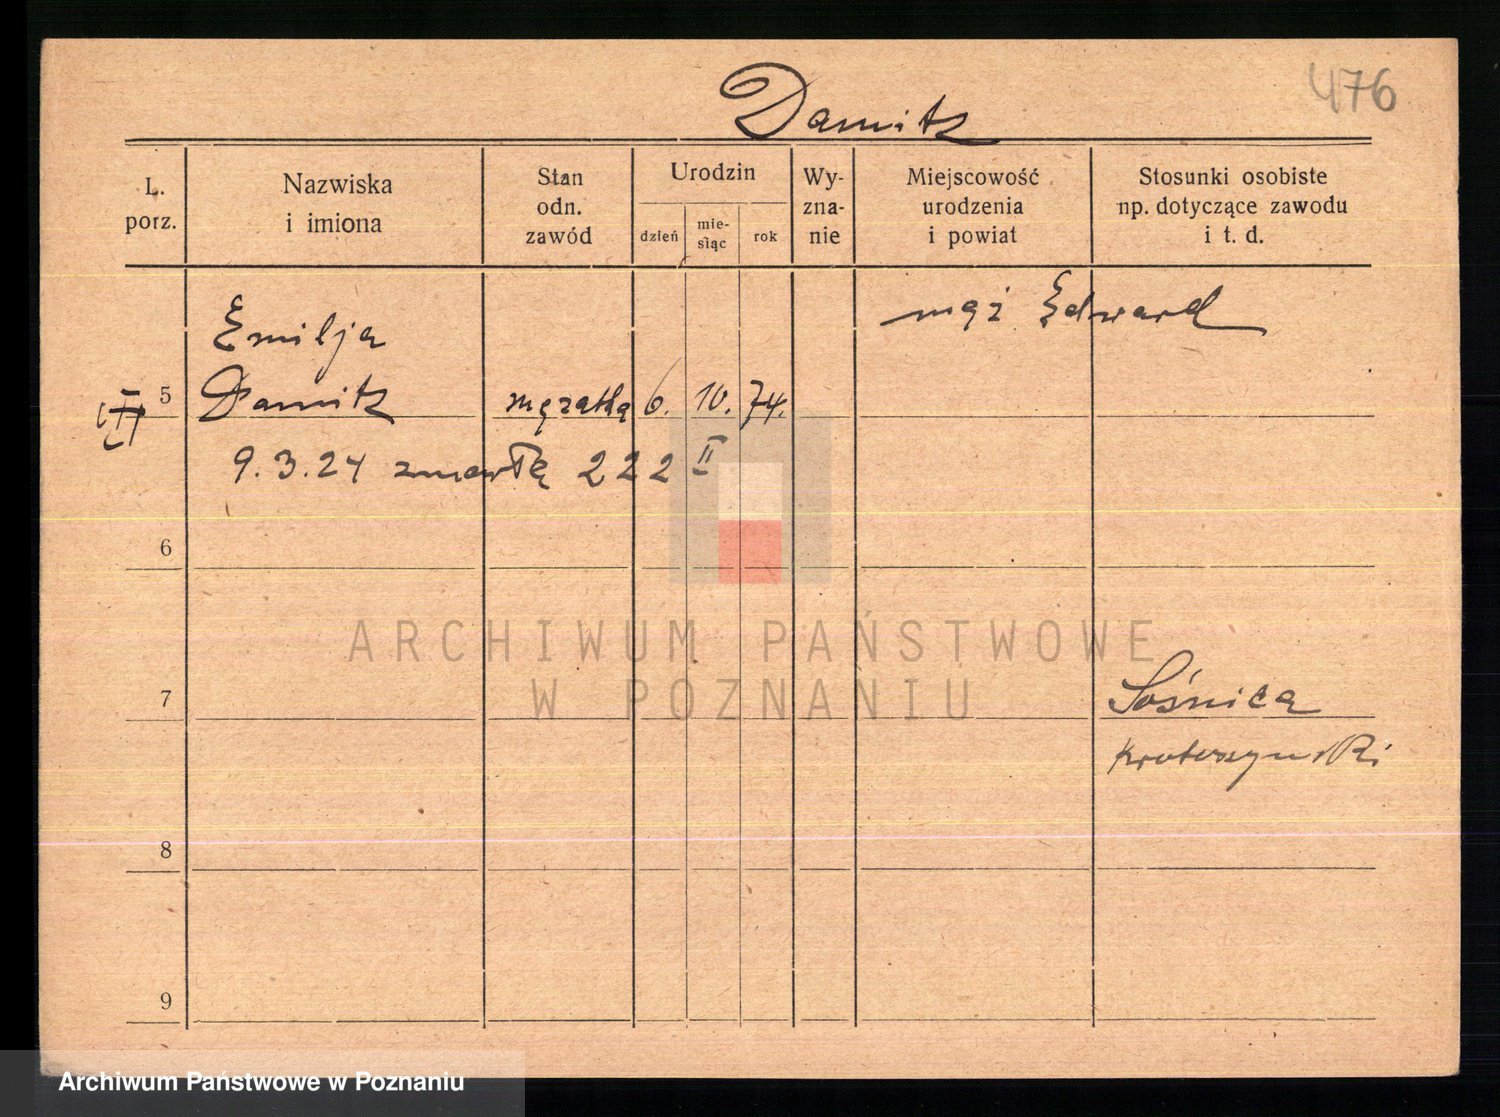 476
Damitz
L. porz.
Nazwiska i imiona
Stan odn. zawód
Urodzin
dzień
mie-siąc
rok
Wy-zna-nie
Miejscowość urodzenia i powiat
Stosunki osobiste np. dotyczące zawodu i t. d.
mąż Edward
Emilja
5 Damitz mężatka 6. 10. 74.
9.3.24 zmarła 222 II
6
ARCHIWUM PAŃSTWOWE
W POZNANIU
7
Sośnica
Krotoszyński
8
9
Archiwum Państwowe w Poznaniu